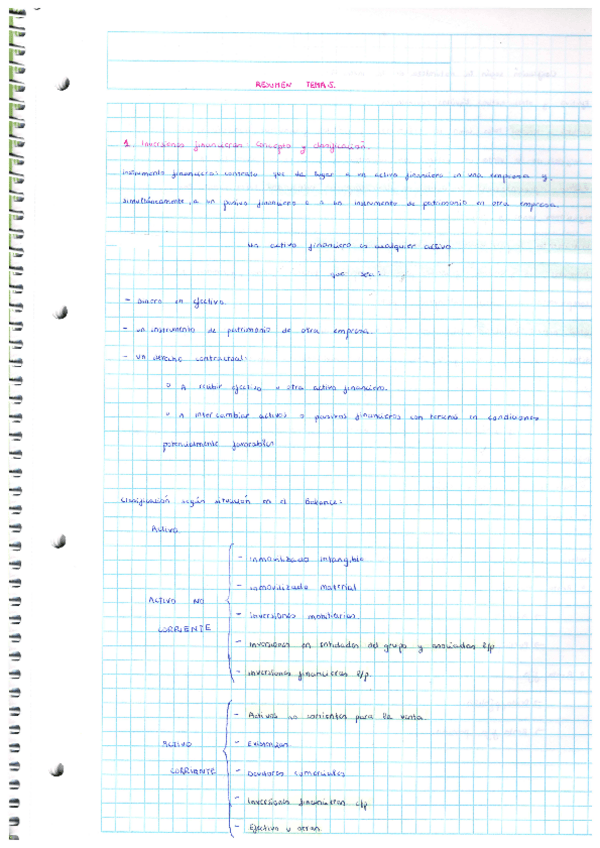 RESUMEN TEMA 5.
1. Inversiones financieras: Concepto y clasificación.
instrumento financiero: contrato que da lugar a un activo financiero en una empresa y,
simultáneamente, a un pasivo financiero o a un instrumento de patrimonio en otra empresa.
un activo financiero es cualquier activo
que sea:
- Dinero en efectivo.
- un instrumento de patrimonio de otra empresa.
- un derecho contractual:
o A recibir efectivo u otro activo financiero.
o A intercambiar activos o pasivos financieros con terceros en condiciones
potencialmente favorables
Clasificación según situación en el Balance:
Activo
- inmovilizado intangible
- inmovilizado material
ACTIVO NO
- inversiones inmobiliarias
CORRIENTE
- Inversiones en entidades del grupo y asociadas l/p
- inversiones financieras l/p.
- Activos no corrientes para la venta.
ACTIVO
- Existencias
CORRIENTE
- Deudores comerciales
- Inversiones financieras c/p
- Efectivo y otros